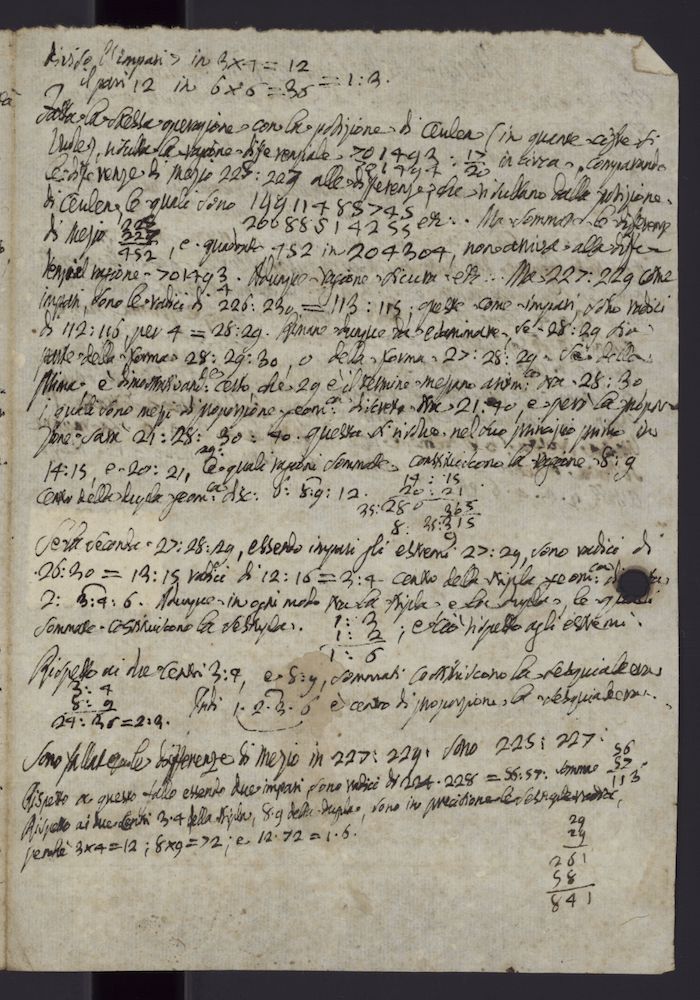 divido l'impari > in 3×4 = 12
il pari 12 in 6×6 = 36 = 1:3.
Fatta la stessa operazione con la posizione di Ceulen (in quante cifre si
vuole), risulta la ragione differenziale 701493 : 17/20 in circa. Comparando
le differenze di mezio 225:227 alle differenze, che risultano dalla posizione
di Ceulen, le quali sono 14911485745
200885514255 etc. Ma sommate le differenze
di mezio 225 227 452, e quadrate 452 in 204304, non arriva alla diffe-
renziale ragione 701493. Adunque ragione sicura etc... Ma 227:229 come
impari, sono le radici di 226:230 = 113:115, queste come impari, sono radici
di 112:116 per 4 = 28:29. Rimane dunque da esaminare se 28:29 sia
parte della forma 28:29:30, o della forma 27:28:29. Se della
prima è dimostrativamente certo, che 29 è il termine mezzano aritm.co tra 28:30
i quali sono mezi di proporzione geom.ca discreta tra 21:40, e però la propor-
zione sarà 21:28:30:40. questa si risolve nel suo principio primo in
14:15, e 20:21, le quali ragioni sommate constituiscono la ragione 8:9
centro della dupla geom.ca disc. 6:8:9:12.
14:15
20:21
35:280 315
8. 35:315
9
Se la seconda 27:28:29, essendo impari gli estremi 27:29, sono radici di
26:30 = 13:15 radici di 12:16 = 3:4 centro della tripla geom.ca
2:3:4:6. Adunque in ogni modo tra la tripla e la dupla, le quali
sommate costituiscono la sestupla. 1:3
1:2 ; e ciò rispetto agli estremi.
1:6
Rispetto ai due centri 3:4, e 8:9, sommati costituiscono la sesquialtera
3:4
8:9 Indi 1.2.3.6 è centro di proporzione la sesquialtera.
24:36 = 2:3.
Sono fallate quelle differenze di mezio in 227:229. Sono 225:227. 56
Rispetto a questo fallo essendo due impari sono radici di 224.228 = 56:57. somma 57
113
Rispetto ai due centri 3.4 della tripla, 8.9 della dupla, sono in precisione le sesquialtere,
perchè 3×4 = 12; 8×9 = 72; e 12.72 = 1.6.
29
29
261
58
841